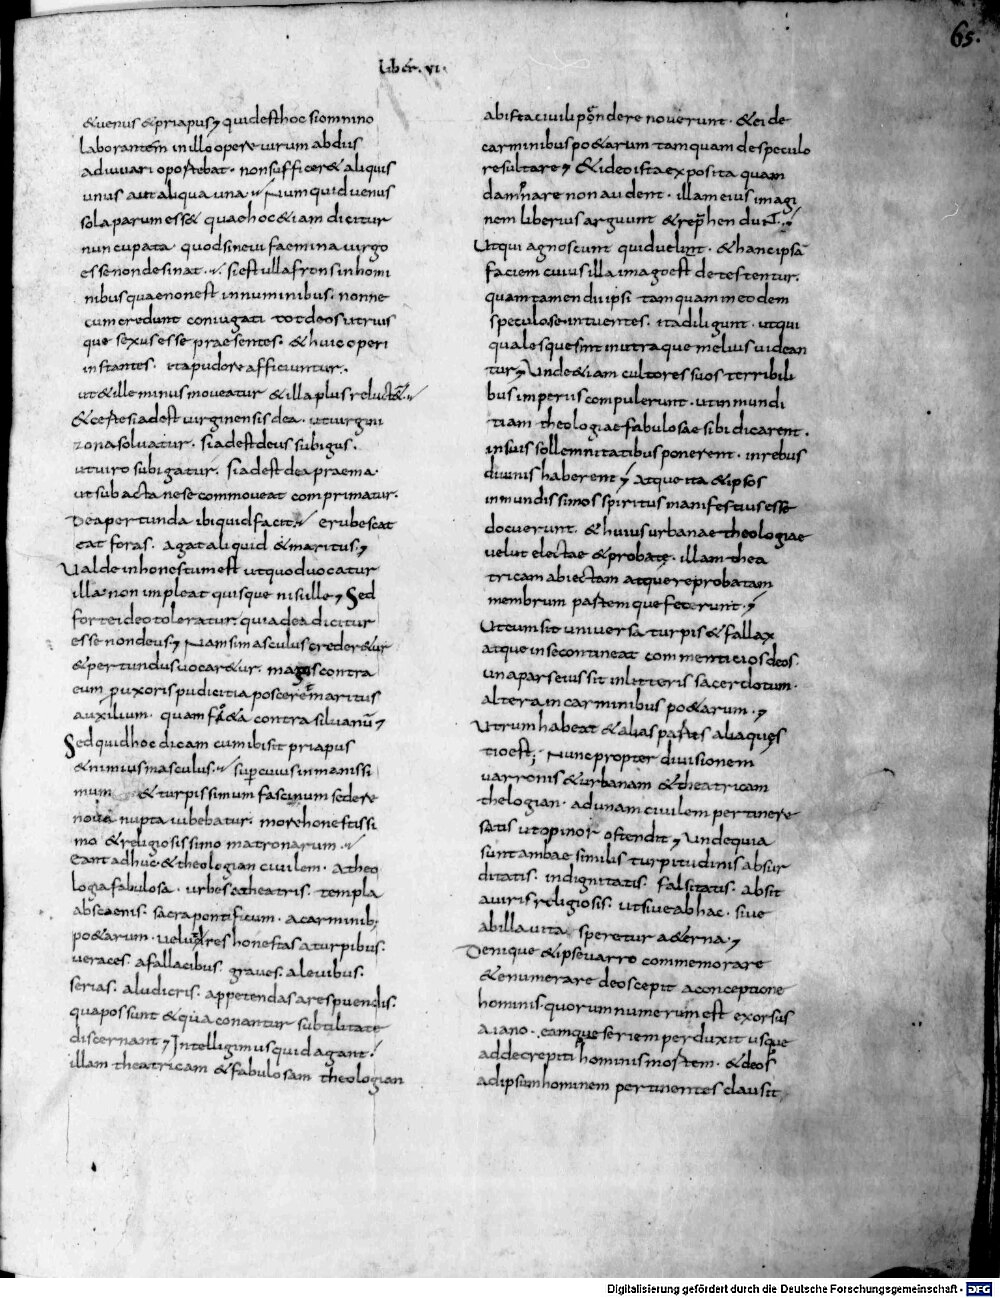 65.
Liber . vi .
&uenus &priapus; quid est hoc si omnino
laborantem in illo opere uirum ab diis
adiuuari oportebat . non suffic&er& aliquis
unus aut aliqua una . Numquid uenus
sola parum ess& quae hoc &iam dicitur
nuncupata quod sine ui faemina uirgo
esse non desinat . si est ulla frons in homi
nibus quae non est in numinibus . nonne
cum credunt coniugati tot deos utrius
que sexus esse praesentes . & huic operi
instantes . ita pudore afficiuntur .
ut & ille minus moueatur & illa plus reluct&
& certe si adest uirginensis dea . ut uirgini
zona soluatur . si adest deus subigus .
ut uiro subigatur . si adest dea praema
ut subacta ne se commoueat comprimatur .
Dea pertunda ibi quid facit . erubescat
eat foras . agat aliquid & maritus;
Ualde inhonestum est ut quod uocatur
illa non impleat quisque nisi ille; Sed
forte ideo toleratur quia dea dicitur
esse non deus; Nam si masculus creder&ur
& pertundus uocar&ur . magis contra
eum p uxoris pudicitia posceret maritus
auxilium . quam f&a contra siluanū;
Sed quid hoc dicam cum ibi sit priapus
& nimius masculus . sup cuius inmanissi
mum & turpissimum fascinum sedere
noua nupta iubebatur . more honestissi
mo & religiosissimo matronarum .
Eant adhuc & theologian ciuilem . a theo
logia fabulosa . urbes a theatris . templa
ab scaenis . sacra pontificum . a carminib;
po&arum . uelut res honestas a turpibus .
ueraces . a fallacibus . graues . a leuibus .
serias . a ludicris . appetendas a respuendis .
qua possunt & qua conantur subtilitate
discernant; Intelligimus quid agant .
illam theatricam & fabulosam theologian
ab ista ciuili pendere nouerunt . & ei de
carminibus po&arum tamquam de speculo
resultare; & ideo ista exposita quam
damnare non audent . illam eius imagi
nem liberius arguunt & rephendunt .
Ut qui agnoscunt quid uelint . & hanc ipsā
faciem cuius illa imago est detestentur .
quam tamen dii ipsi tamquam in eodem
speculo se intuentes . ita diligunt . ut qui
quales que sint in utraque melius uidean
tur; Unde &iam cultores suos terribili
bus imperiis compulerunt . ut inmundi
tiam theologiae fabulosae sibi dicarent .
in suis sollemnitatibus ponerent . in rebus
diuinis haberent; Atque ita & ipsos
inmundissimos spiritus manifestius esse
docuerunt . & huius urbanae theologiae
uelut electae & probatę . illam thea
tricam abiectam atque reprobatam
membrum partemque fecerunt .
Ut cum sit uniuersa turpis & fallax
atque in se contineat commenticios deos .
una pars eius sit in litteris sacerdotum .
altera in carminibus po&arum .
Utrum habeat & alias partes alia quęs
tio est; Nunc propter diuisionem
uarronis & urbanam & theatricam
thelogian . ad unam ciuilem pertinere
satis ut opinor ostendit; Unde quia
sunt ambae similis turpitudinis absur
ditatis . indignitatis . falsitatis . absit
a uiris religiosis . ut siue ab hac . siue
ab illa uita speretur a&erna .
Denique & ipse uarro commemorare
& enumerare deos cepit a conceptione
hominis quorum numerum est exorsus
a iano . eamque seriem perduxit usque
ad decrepiti hominis mortem . & deos
ad ipsum hominem pertinentes clausit
Digitalisierung gefördert durch die Deutsche Forschungsgemeinschaft - DFG